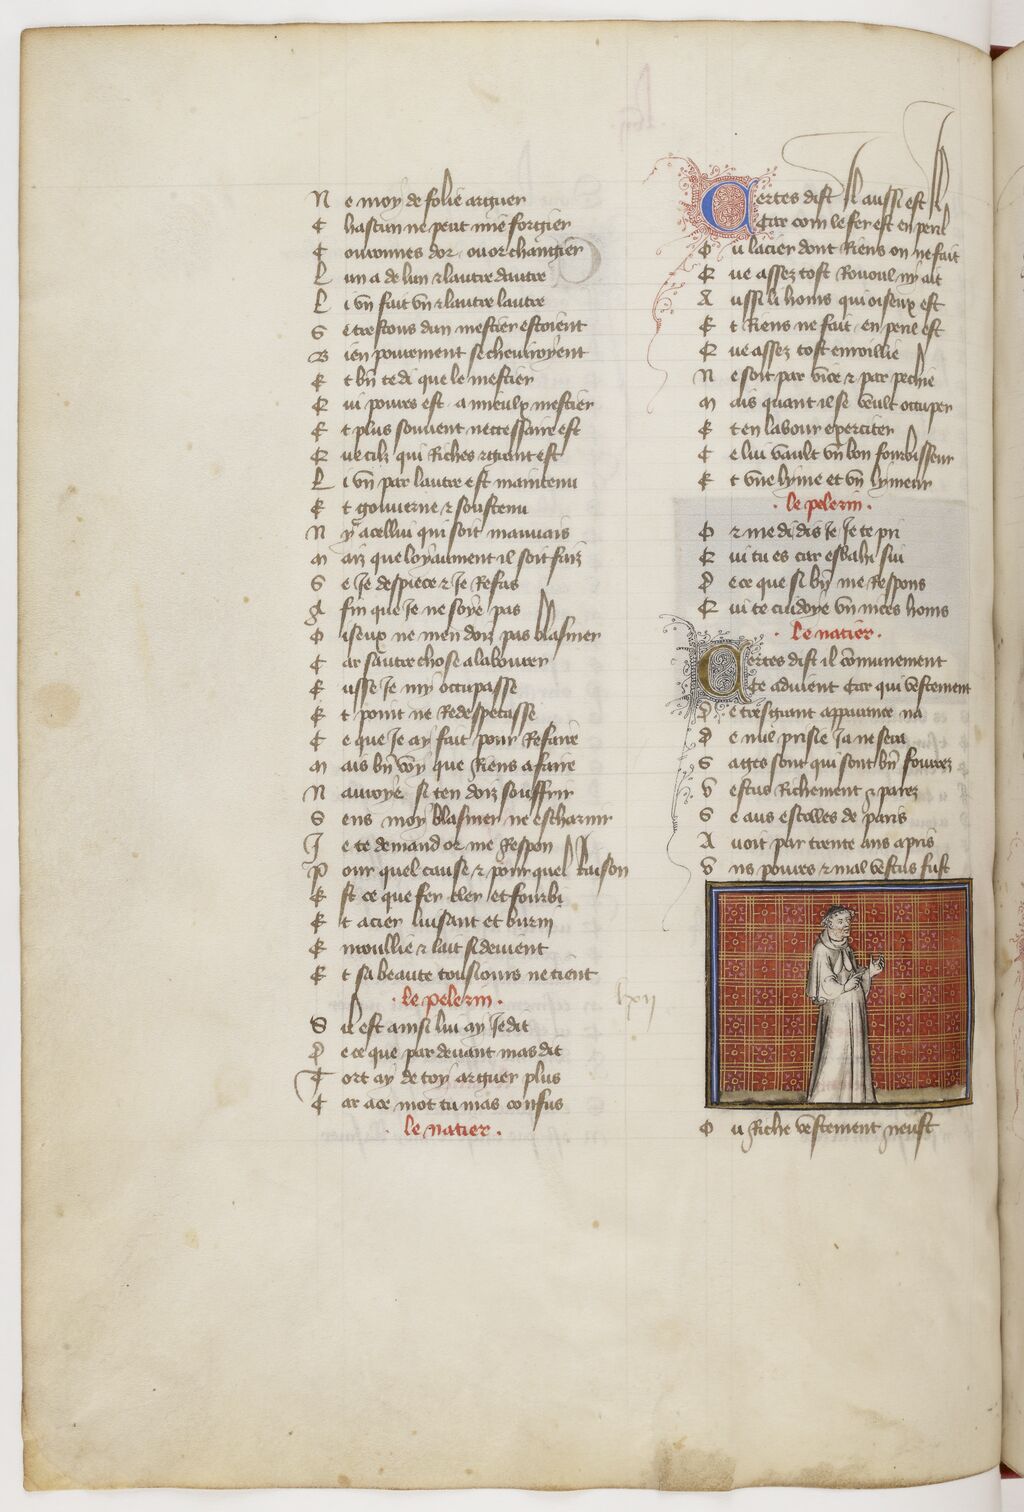 Ne moy de folie arguer
Chascun ne peut mie forgier
Couronnes dor ou or changier
Lun a de lun & lautre dautre
Li vn fait vn & lautre lautre
Se trestous dun mestier estoient
Bien pourement se cheuiroyent
Et bn te di que le mestier
Qui poures est a mieulx mestier
Et plus souuent neccessaire est
Que cilz qui Riches & grant est
Li vn par lautre est maintenu
Et gouuerne & soustenu
Ny a cellui qui soit mauuais
Maiz que loyaument il soit faiz
Se Je despiece & Je Refas
Afin que Je ne soye pas
Oiseux ne men doiz pas blasmer
Car sautre chose a labourer
Eusse Je my occupasse
Et point ne Redespecasse
Ce que Je ay fait pour Refaire
Mais bn voy que Riens a faire
Nauroye si ten doiz souffrir
Sens moy blasmer ne escharnir
Je te demand or me Respon
Pour quel cause & pour quel Raison
Est ce que fer cler et fourbi
Et acier luisant et burni
Enroullie & lait si deuient
Et sa beaute tousiours ne tient
· le pelerin ·
Sil est ainsi lui ay Je dit
De ce que par deuant mas dit
Tort ay de toy arguer plus
Car a ce mot tu mas confus
· le natier ·
Certes dist Il aussi est Il
Car com le fer est en peril
Ou lacier dont Riens on ne fait
Que assez tost Rououl ny ait
Aussi li homs qui oiseux est
Et Riens ne fait en peril est
Que assez tost enroillie
Ne soit par vice & par pechie
Mais quant il se veult occuper
Et en labour exerciter
Ce lui vault vn bon fourbisseur
Et vne lyme et vn lymeur
· le pelerin ·
Or me di dis Je Je te pri
Qui tu es car esbahi sui
De ce que si bn me Respons
Qui te cuidoye vn nices homs
· le natier ·
Certes dist il communement
Ce aduient Car qui vestement
De tresgrant apparance na
De nulz prisie Ja ne sera
Sages sont qui sont bn fourrez
Vestus Richement & parez
Se aus escolles de paris
Auoit par trente ans apris
Vns poures & mal vestus fust
lxii
Ou Riche vestement neust